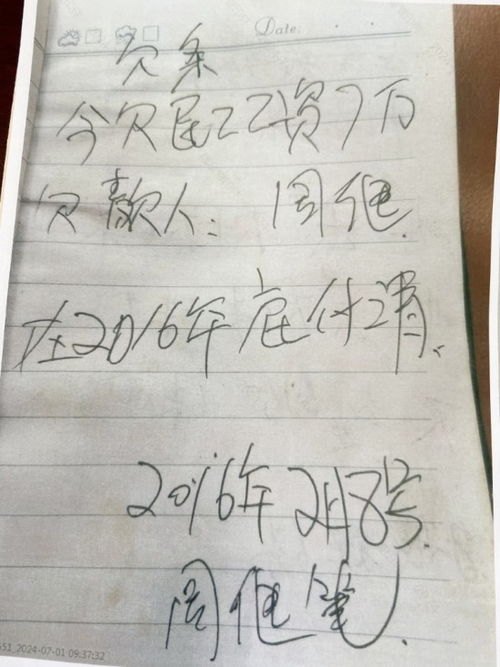 Date:
欠条
今欠民工工资7万
欠款人: 周继
在2016年底付清、
2016年2月8号.
周继笔.
51_2024-07-01 09:37:32